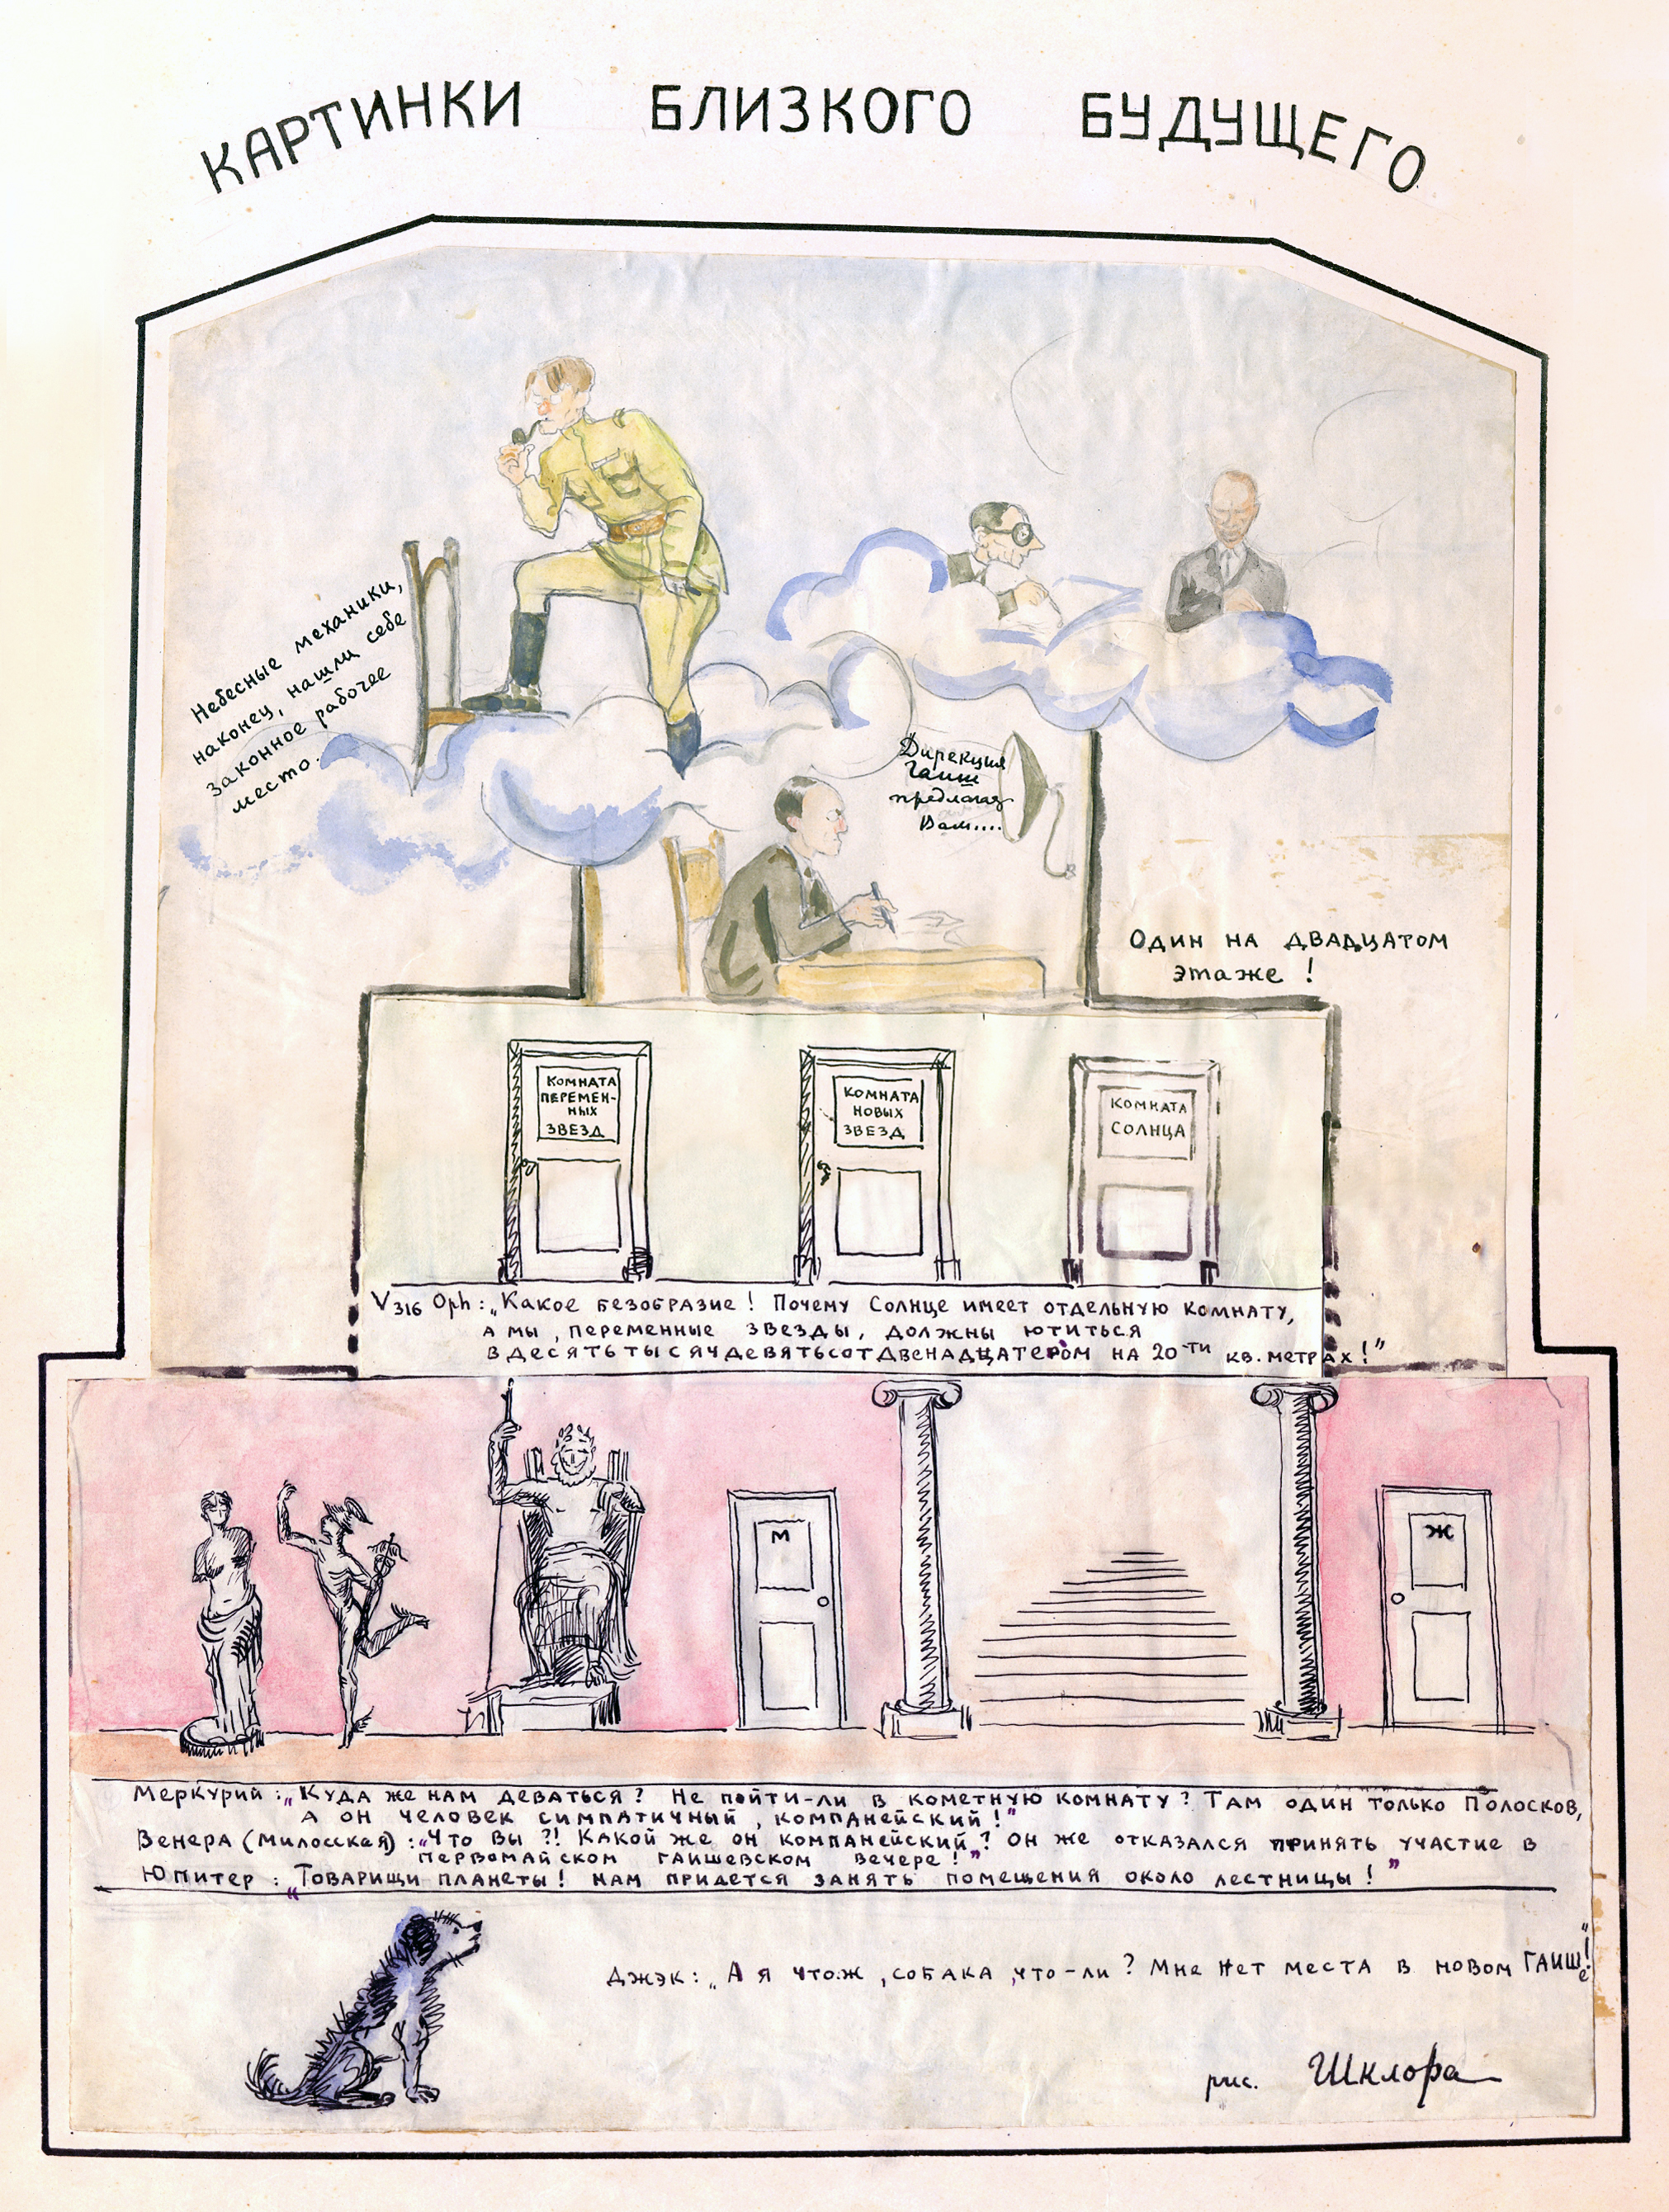 КАРТИНКИ БЛИЗКОГО БУДУЩЕГО
Небесные механики,
наконец, нашли себе
законное рабочее
место.
Дирекция
Гаиш
предлагает
Вам....
Один на двадцатом
этаже!
КОМНАТА
ПЕРЕМЕН-
НЫХ
ЗВЕЗД
КОМНАТА
НОВЫХ
ЗВЕЗД
КОМНАТА
СОЛНЦА
V316 Oph: „Какое безобразие! Почему Солнце имеет отдельную комнату,
а мы, переменные звезды, должны ютиться
вдесятьтысячдевятьсотдвенадцатером на 20-ти кв. метрах!"
М
Ж
Меркурий: „Куда же нам деваться? Не пойти-ли в кометную комнату? Там один только Полосков,
а он человек симпатичный, компанейский!"
Венера (Милосская): „Что вы?! Какой же он компанейский? Он же отказался принять участие в
первомайском гаишевском вечере!"
Юпитер: „Товарищи планеты! Нам придется занять помещения около лестницы!"
Джэк: „А я что-ж, собака, что-ли? Мне нет места в новом ГАИШе!"
рис. Шклора